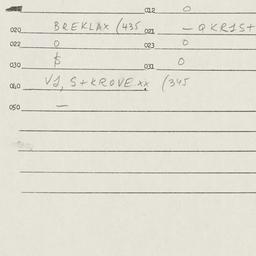 012 0
020 BREKLAX (435 021 – QKRIST
022 0 023 0
030 $ 031 0
040 VI, S+KROVExx (345
050 –